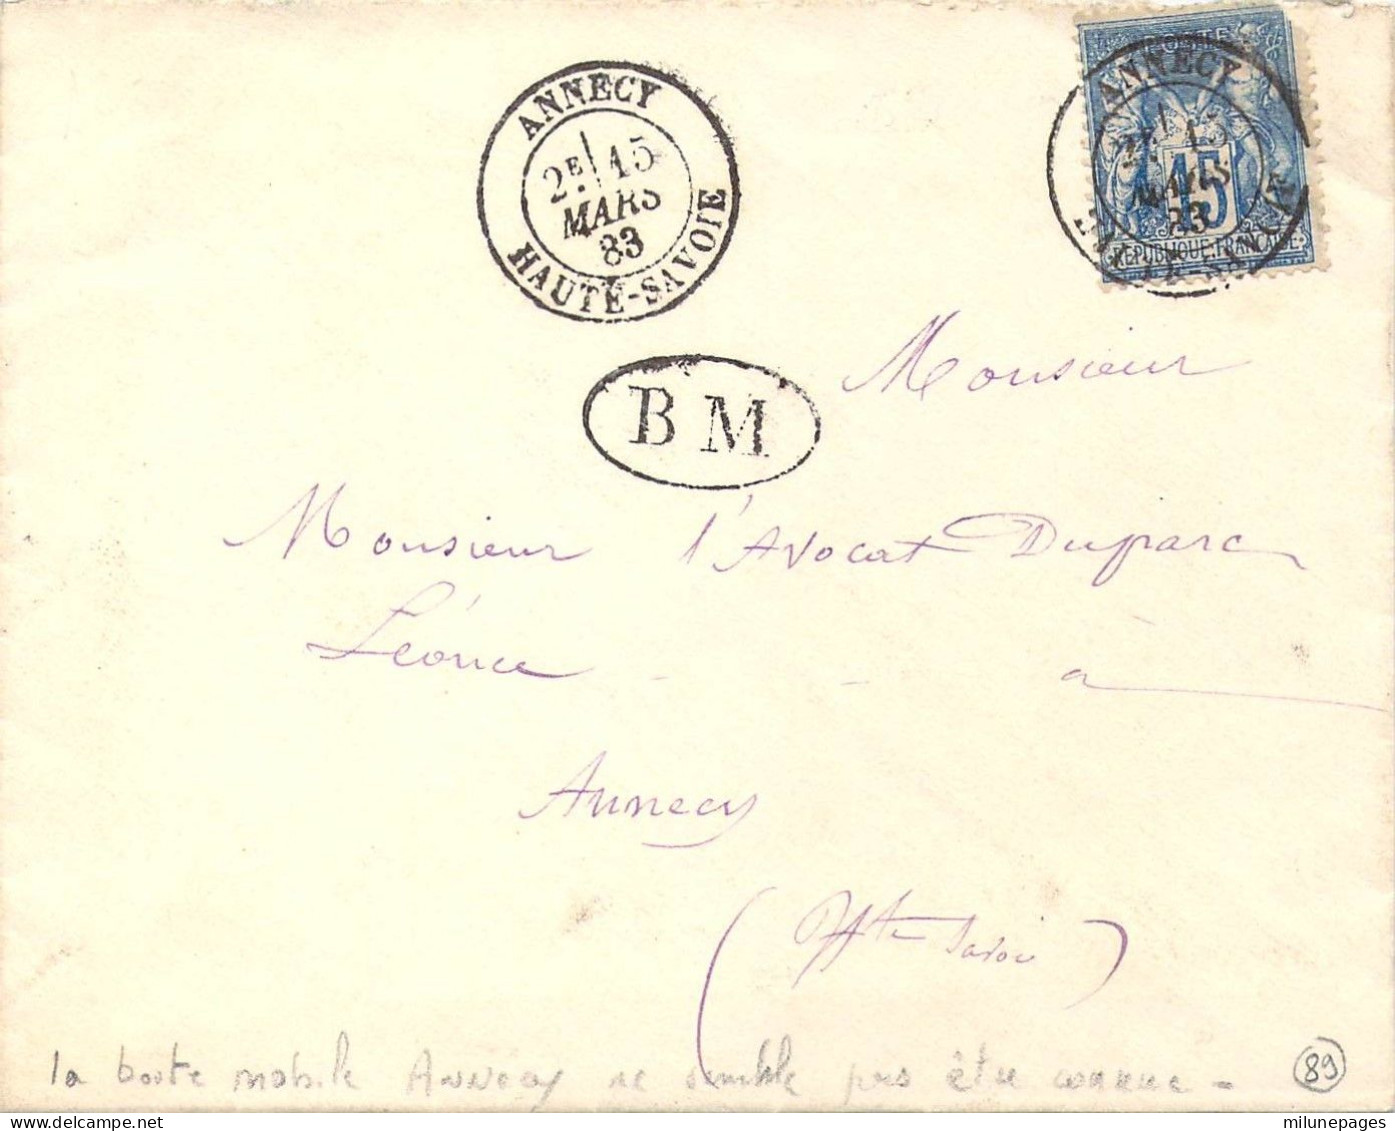 ANNECY
2E 15
MARS
83
HAUTE-SAVOIE
POSTE
ANNECY
2E 15
MARS
83
15
REPUBLIQUE FRANCAISE
B M
Monsieur
Monsieur l'Avocat Duparc
Léonce - - a
Annecy
(Hte Savoie)
la boite mobile ANNECY ne semble pas être connue -
89
milunepages